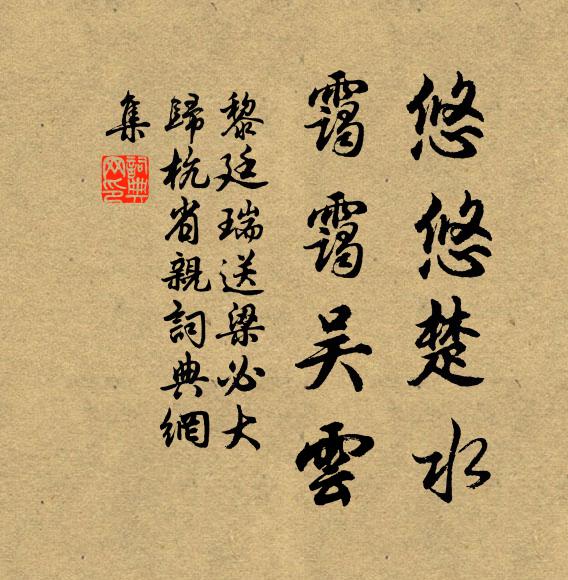 悠悠楚水
靄靄吴雲
黎廷瑞送梁必大
歸杭省親詞典網
集
詞典网印